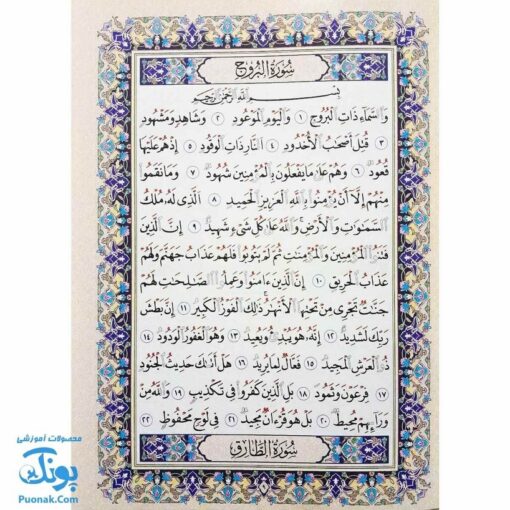 سُورَةُ البُرُوجِ
بِسْمِ اللَّهِ الرَّحْمَٰنِ الرَّحِيمِ
وَالسَّمَاءِ ذَاتِ الْبُرُوجِ ١ وَالْيَوْمِ الْمَوْعُودِ ٢ وَشَاهِدٍ وَمَشْهُودٍ
٣ قُتِلَ أَصْحَابُ الْأُخْدُودِ ٤ النَّارِ ذَاتِ الْوَقُودِ ٥ إِذْ هُمْ عَلَيْهَا
قُعُودٌ ٦ وَهُمْ عَلَىٰ مَا يَفْعَلُونَ بِالْمُؤْمِنِينَ شُهُودٌ ٧ وَمَا نَقَمُوا
مِنْهُمْ إِلَّا أَنْ يُؤْمِنُوا بِاللَّهِ الْعَزِيزِ الْحَمِيدِ ٨ الَّذِي لَهُ مُلْكُ
السَّمَاوَاتِ وَالْأَرْضِ وَاللَّهُ عَلَىٰ كُلِّ شَيْءٍ شَهِيدٌ ٩ إِنَّ الَّذِينَ
فَتَنُوا الْمُؤْمِنِينَ وَالْمُؤْمِنَاتِ ثُمَّ لَمْ يَتُوبُوا فَلَهُمْ عَذَابُ جَهَنَّمَ وَلَهُمْ
عَذَابُ الْحَرِيقِ ١٠ إِنَّ الَّذِينَ ءَامَنُوا وَعَمِلُوا الصَّالِحَاتِ لَهُمْ
جَنَّاتٌ تَجْرِي مِنْ تَحْتِهَا الْأَنْهَارُ ذَٰلِكَ الْفَوْزُ الْكَبِيرُ ١١ إِنَّ بَطْشَ
رَبِّكَ لَشَدِيدٌ ١٢ إِنَّهُ هُوَ يُبْدِئُ وَيُعِيدُ ١٣ وَهُوَ الْغَفُورُ الْوَدُودُ ١٤
ذُو الْعَرْشِ الْمَجِيدُ ١٥ فَعَّالٌ لِمَا يُرِيدُ ١٦ هَلْ أَتَاكَ حَدِيثُ الْجُنُودِ
١٧ فِرْعَوْنَ وَثَمُودَ ١٨ بَلِ الَّذِينَ كَفَرُوا فِي تَكْذِيبٍ ١٩ وَاللَّهُ مِنْ
وَرَائِهِمْ مُحِيطٌ ٢٠ بَلْ هُوَ قُرْءَانٌ مَجِيدٌ ٢١ فِي لَوْحٍ مَحْفُوظٍ ٢٢
سُورَةُ الطَّارِقِ
٩
محصولات آموزشی
پونک
Puonak.Com